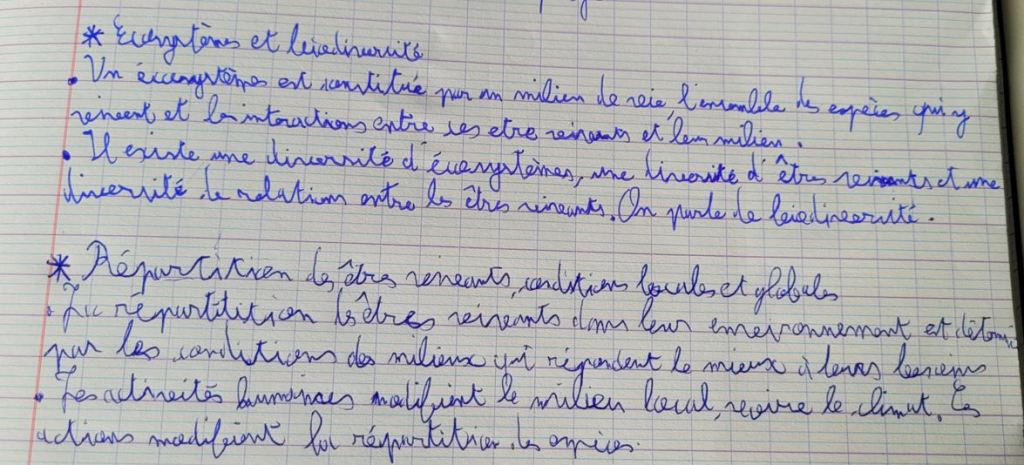 * Écosystèmes et biodiversité
• Un écosystèmes est constitué par un milien de vie, l'ensemble des espèces qui y
vivent et les interactions entre ses etre vivants et leur milieu.
• Il existe une diversité d'écosystèmes, une diversité d'êtres vivants et une
diversité de relations entre les êtres vivants. On parle de biodiversité.
* Répartition des êtres vivants, conditions locales et globales
• La répartitition des êtres vivants dans leur environnement est détermi
par les conditions des milieux qui répondent le mieux à leurs besoins
• Les activités humaines modifient le milieu local, voire le climat. Ces
actions modifient la répartition des espèces.